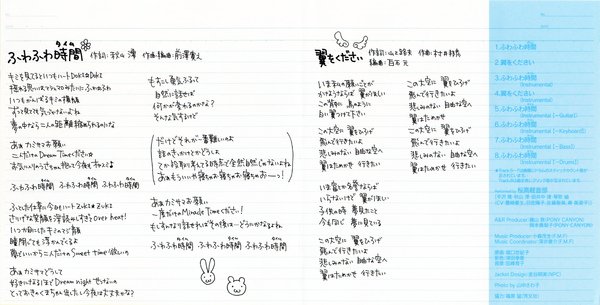 ふわふわ時間
タイム
作詞：秋山 澪 作曲・編曲：前澤寛之
キミを見てるといつもハートDoki☆Doki
揺れる思いはマシュマロみたいにふわ♡ふわ
いつもがんばるキミの横顔
ずっと見てても気づかないよね
夢の中なら二人の距離縮められるのにな
あぁ カミサマお願い
二人だけのDream Timeください☆
お気に入りのうさちゃん抱いて今夜もオヤスミ
ふわふわ時間 ふわふわ時間 ふわふわ時間
ふとした仕草に今日もハートZuki☆Zuki
さりげな笑顔を深読みしすぎてOver heat!
いつか目にしたキミのマジ顔
瞳閉じても浮かんでくるよ
夢でいいから二人だけのSweet time欲しいの
あぁ カミサマどうして
好きになるほどDream nightせつないの
とっておきのくまちゃん出したし今夜は大丈夫かな？
もすこし勇気ふるって
自然に話せば
何かが変わるのかな？
そんな気するけど
(だけどそれが一番難しいのよ
話のきっかけとかどうしよ
てか段取り考えてる時点で全然自然じゃないよね
あぁもういいや寝ちゃお寝ちゃお寝ちゃおーっ！)
あぁ カミサマお願い
一度だけのMiracle Timeください！
もしすんなり話せればその後は…どうにかなるよね
ふわふわ時間 ふわふわ時間 ふわふわ時間
翼をください
作詞：山上路夫 作曲：村井邦彦
編曲：百石 元
いま私の願いごとが
かなうならば 翼がほしい
この背中に 鳥のように
白い翼つけて下さい
この大空に 翼をひろげ
飛んで行きたいよ
悲しみのない 自由な空へ
翼はためかせ 行きたい
いま富とか名誉ならば
いらないけど 翼がほしい
子供の時 夢見たこと
今も同じ 夢に見ている
この大空に 翼をひろげ
飛んで行きたいよ
悲しみのない 自由な空へ
翼はためかせ 行きたい
この大空に 翼をひろげ
飛んで行きたいよ
悲しみのない 自由な空へ
翼はためかせ
この大空に 翼をひろげ
飛んで行きたいよ
悲しみのない 自由な空へ
翼はためかせ 行きたい
1.ふわふわ時間
2.翼をください
3.ふわふわ時間
(Instrumental)
4.翼をください
(Instrumental)
5.ふわふわ時間
(Instrumental【-Guitar】)
6.ふわふわ時間
(Instrumental【-Keyboard】)
7.ふわふわ時間
(Instrumental【-Bass】)
8.ふわふわ時間
(Instrumental【-Drums】)
Performed by 桜高軽音部
A&R Producer：
(PONY CANYON)
Music Producer：小森茂生(F.M.F)
Music Coordinator：
Photo by 山内さつき